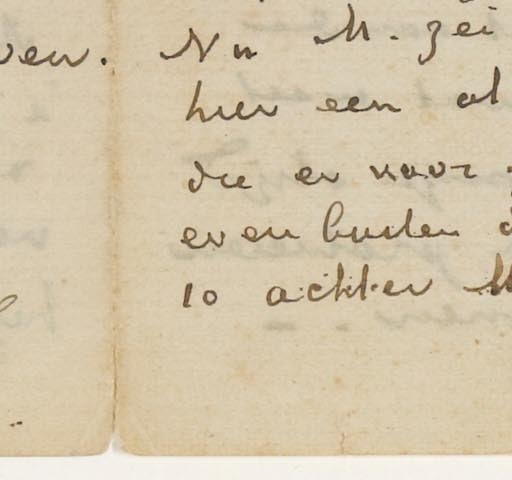 ven. Nu M. zei
hier een al
die er voor
even buiten d
10 achter M